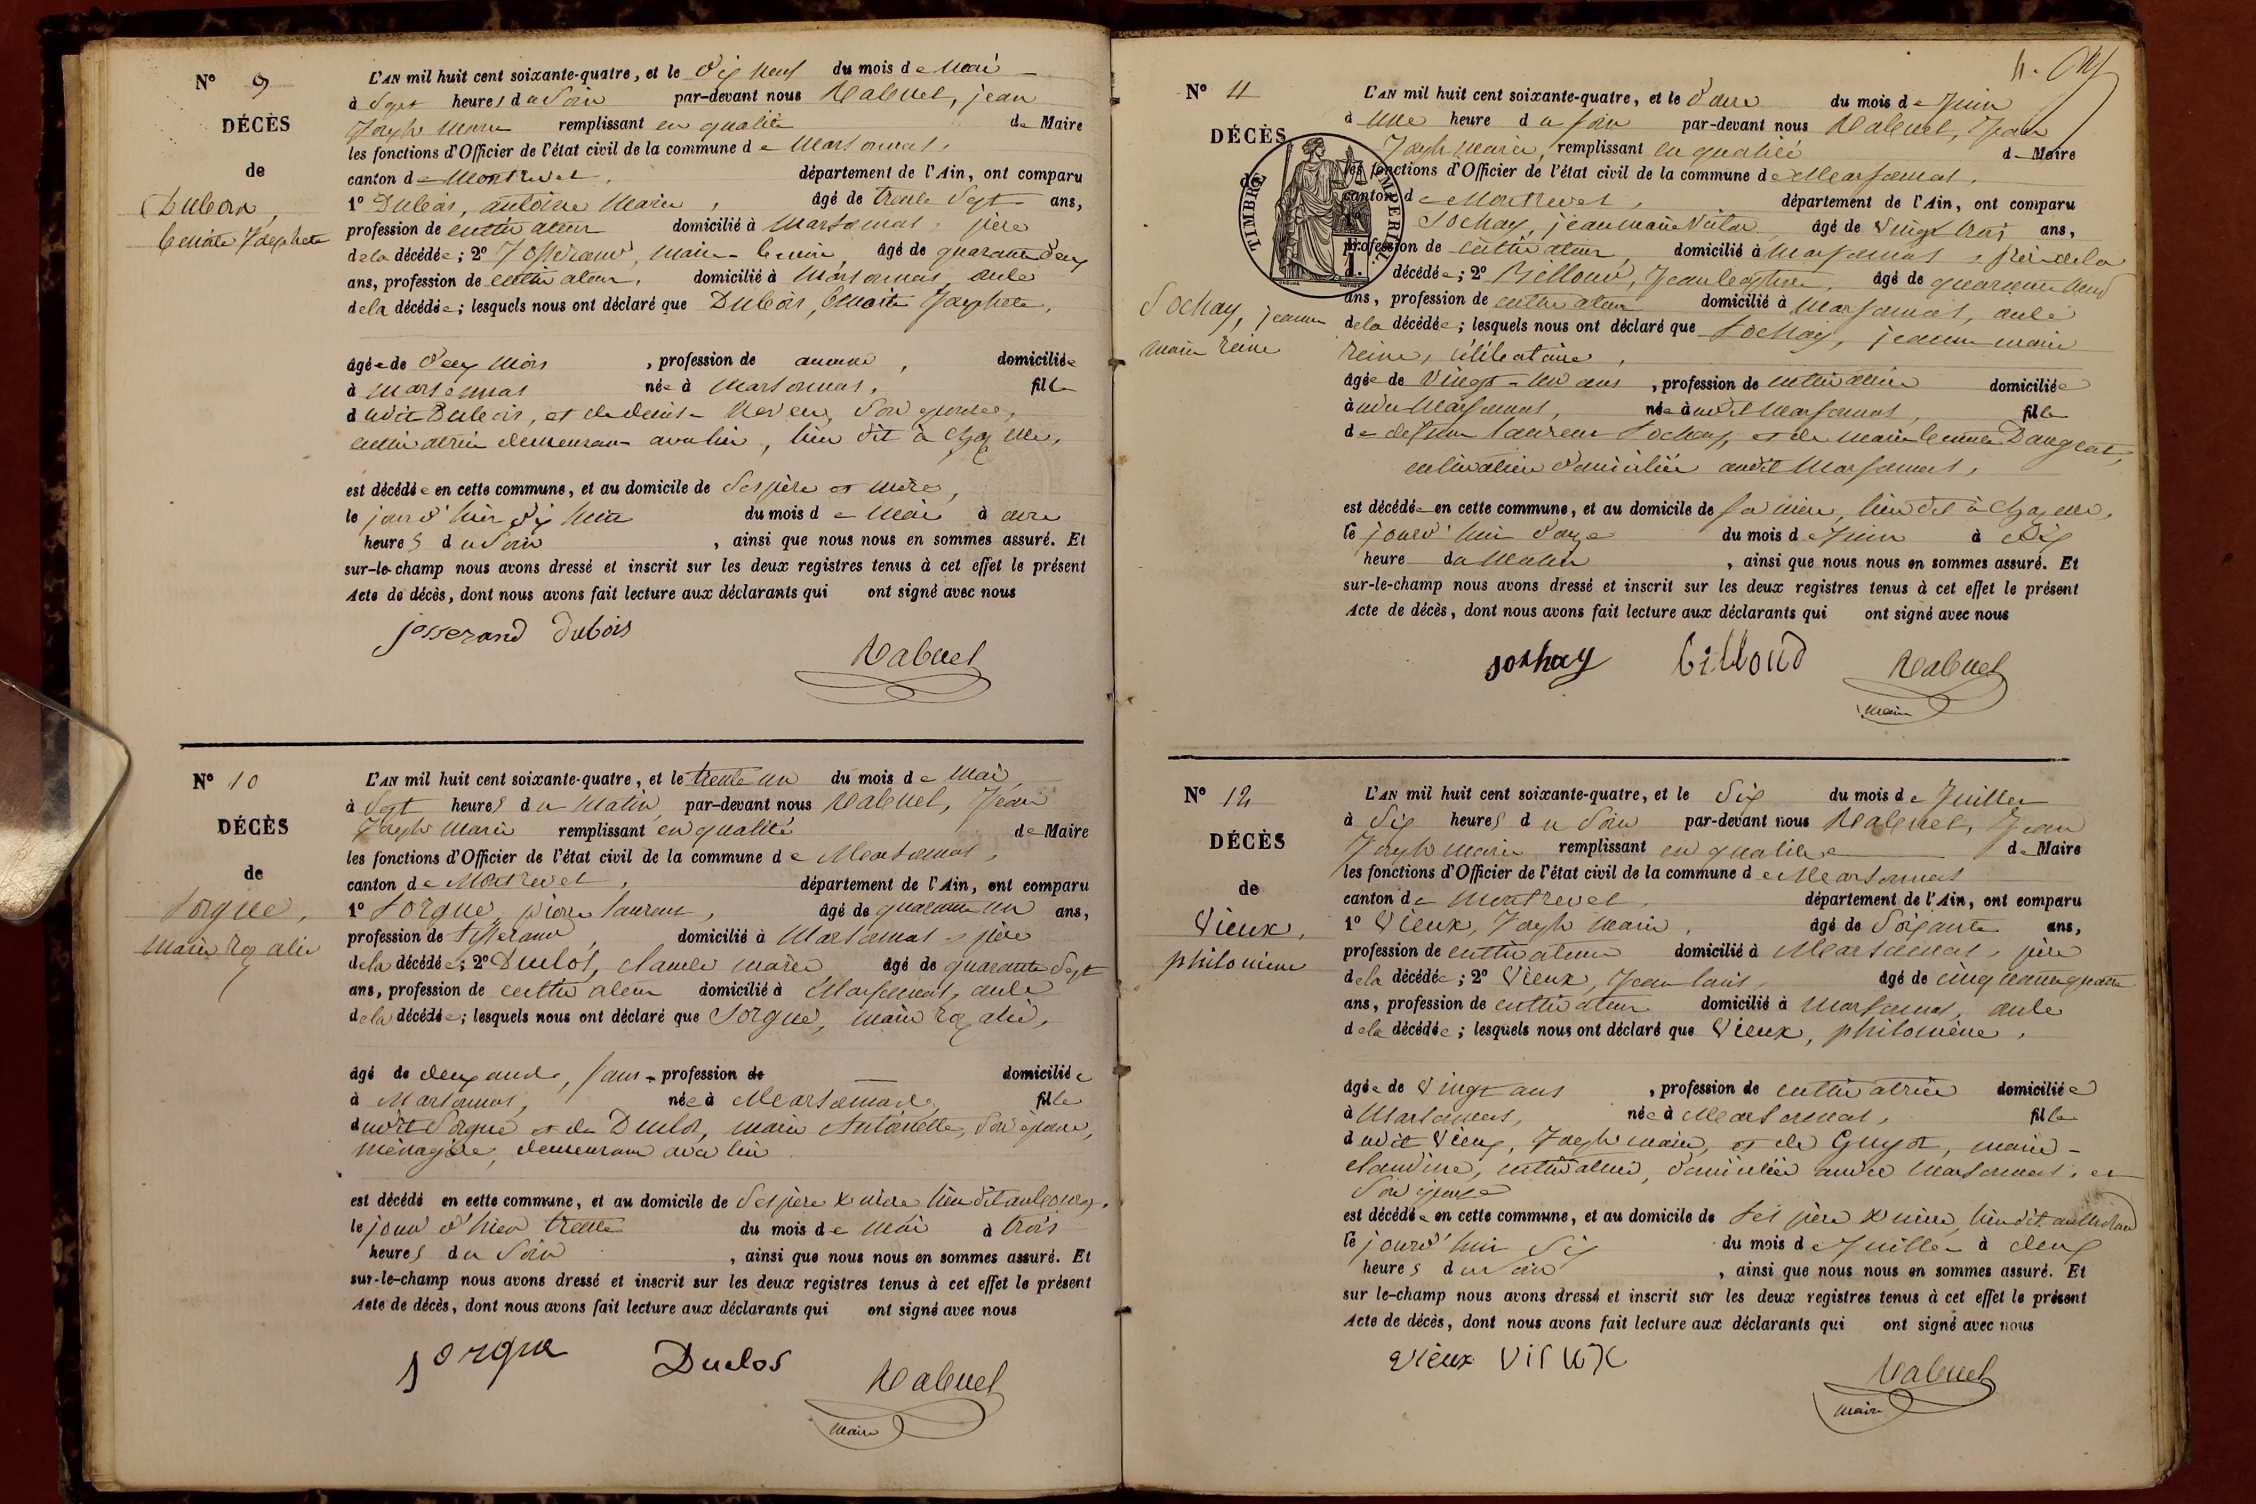 N° 9
DÉCÈS
de
Dubois,
benoite Josephete
L'AN mil huit cent soixante-quatre, et le dix neuf du mois de Mai
à Sept heures du Soir par-devant nous Rabuel, jean
Joseph Marie remplissant en qualité de Maire
les fonctions d'Officier de l'état civil de la commune de Marsonnas,
canton de Montrevel, département de l'Ain, ont comparu
1° Dubois, antoine Marie, âgé de trente Sept ans,
profession de cultivateur domicilié à Marsonnas, père
de la décédée; 2° Josserand, Marie benoit, âgé de quarante deux
ans, profession de cultivateur, domicilié à Marsonnas,
de la décédée; lesquels nous ont déclaré que Dubois, benoite Josephete,
âgée de deux Mois, profession de aucune, domiciliée
à Marsonnas née à Marsonnas, fille
dudit Dubois, et de denise son épouse,
cultivatrice demeurant avec lui, lieu dit à Chazelle,
est décédée en cette commune, et au domicile de Ses père et mère,
le jour d'hier dix huit du mois de Mai à onze
heures du Soir, ainsi que nous nous en sommes assuré. Et
sur-le-champ nous avons dressé et inscrit sur les deux registres tenus à cet effet le présent
Acte de décès, dont nous avons fait lecture aux déclarants qui ont signé avec nous
josserand Dubois
Rabuel
N° 10
DÉCÈS
de
Sorgue,
Marie rozalie
L'AN mil huit cent soixante-quatre, et le trente un du mois de Mai
à Sept heures du Matin par-devant nous Rabuel, Jean
Joseph Marie remplissant en qualité de Maire
les fonctions d'Officier de l'état civil de la commune de Marsonnas,
canton de Montrevel, département de l'Ain, ont comparu
1° Sorgue, pierre laurent, âgé de quarante un ans,
profession de tisserand, domicilié à Marsonnas, père
de la décédée; 2° Duclos, claude marie âgé de quarante Sept
ans, profession de cultivateur domicilié à Marsonnas,
de la décédée; lesquels nous ont déclaré que Sorgue, marie rozalie,
âgé de deux ans, sans profession de domiciliée
à Marsonnas, née à Marsonnas, fille
dudit Sorgue et de Duclos, marie Antoinette, Son épouse,
ménagère, demeurant avec lui
est décédé en cette commune, et au domicile de Ses père & mère lieu dit au bourg,
le jour d'hier trente du mois de Mai à trois
heures du Soir, ainsi que nous nous en sommes assuré. Et
sur-le-champ nous avons dressé et inscrit sur les deux registres tenus à cet effet le présent
Acte de décès, dont nous avons fait lecture aux déclarants qui ont signé avec nous
Sorgue Duclos
Rabuel
Maire
4.
N° 11
DÉCÈS
de
Sochay, jeanne
marie reine
TIMBRE IMPÉRIAL.
L'AN mil huit cent soixante-quatre, et le douze du mois de Juin
à une heure du Soir par-devant nous Rabuel, Jean
Joseph Marie, remplissant en qualité de Maire
les fonctions d'Officier de l'état civil de la commune de Marsonnas,
canton de Montrevel, département de l'Ain, ont comparu
1° Sochay, jean marie Victor âgé de vingt trois ans,
profession de cultivateur, domicilié à Marsonnas, frère de la
décédée; 2° Billoud, Jean baptiste, âgé de quarante neuf
ans, profession de cultivateur domicilié à Marsonnas,
de la décédée; lesquels nous ont déclaré que Sochay, jeanne marie
reine, célibataire,
âgée de vingt-un ans, profession de cultivatrice domiciliée
à udit Marsonnas, née à udit Marsonnas, fille
de défunt laurent Sochay, et de marie benoite Dangeat,
cultivatrice domiciliée audit Marsonnas,
est décédée en cette commune, et au domicile de sa mère, lieu dit à Chazelle,
le jourd'hui douze du mois de Juin à dix
heure du Matin, ainsi que nous nous en sommes assuré. Et
sur-le-champ nous avons dressé et inscrit sur les deux registres tenus à cet effet le présent
Acte de décès, dont nous avons fait lecture aux déclarants qui ont signé avec nous
sochay billoud Rabuel
Maire
N° 12
DÉCÈS
de
Vieux,
philomène
L'AN mil huit cent soixante-quatre, et le Six du mois de Juillet
à Six heures du Soir par-devant nous Rabuel, Jean
Joseph Marie remplissant en qualité de Maire
les fonctions d'Officier de l'état civil de la commune de Marsonnas
canton de Montrevel, département de l'Ain, ont comparu
1° Vieux, Joseph Marie, âgé de Soixante ans,
profession de cultivateur domicilié à Marsonnas, père
de la décédée; 2° Vieux, Jean louis, âgé de cinquante quatre
ans, profession de cultivateur domicilié à Marsonnas,
de la décédée; lesquels nous ont déclaré que Vieux, philomène,
âgée de vingt ans, profession de cultivatrice domiciliée
à Marsonnas, née à Marsonnas, fille
dudit Vieux, Joseph marie, et de Guyot, marie-
claudine, cultivatrice, domiciliée audit Marsonnas, et
Son épouse
est décédée en cette commune, et au domicile de Ses père & mère, lieu dit
le jourd'hui Six du mois de Juillet à deux
heures du Soir, ainsi que nous nous en sommes assuré. Et
sur le-champ nous avons dressé et inscrit sur les deux registres tenus à cet effet le présent
Acte de décès, dont nous avons fait lecture aux déclarants qui ont signé avec nous
vieux vieux Rabuel
Maire